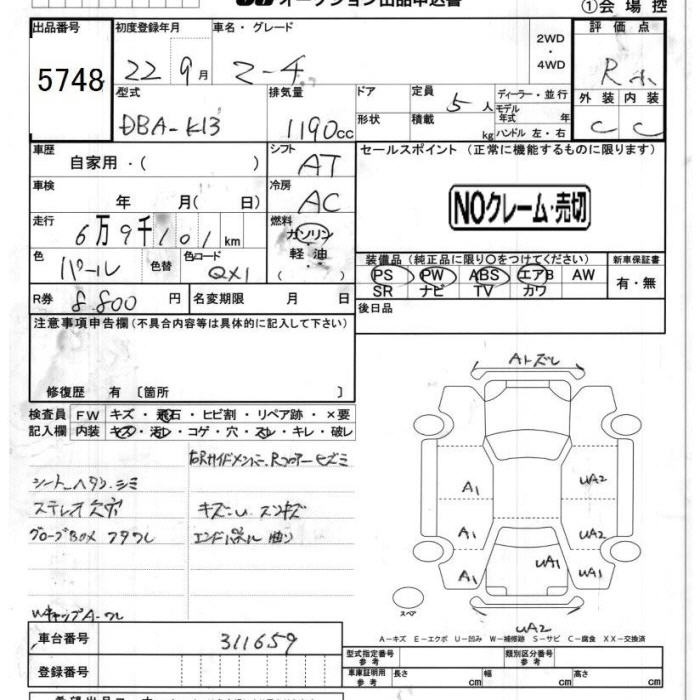 オークション出品申込書
①会場控
出品番号
5748
初度登録年月
22 9月
車名・グレード
マーチ
2WD
・
4WD
評価点
R
外装 内装
C C
型式
DBA-K13
排気量
1190cc
ドア
形状
定員
5人
積載
kg
ディーラー・並行
モデル年式 年
ハンドル 左・右
車歴
自家用・( )
シフト
AT
車検
年 月( 日)
冷房
AC
走行
6万9千101km
燃料
ガソリン
軽油
・
( )
色
パール
色替
色コード
QX1
R券
8,800円
名変期限 月 日
セールスポイント (正常に機能するものに限ります)
NOクレーム・売切
装備品(純正品に限り○をつけてください)
PS PW ABS エアB AW
SR ナビ TV カワ
新車保証書
有・無
後日品
注意事項申告欄(不具合内容等は具体的に記入して下さい)
修復歴 有 〔箇所 〕
検査員 FW キズ・飛石・ヒビ割・リペア跡・×要
記入欄 内装 キズ・汚レ・コゲ・穴・スレ・キレ・破レ
右Rサイドメンバー、Rフロアーヒズミ
シートヘタリ、シミ
ステレオ欠穴
キズ・U
グローブBOX フタワレ
エンドパネル曲り
WキャップA・ワレ
Aトズレ
A1
A1
A1
UA2
UA2
UA1
UA1
UA2
スペア
A-キズ E-エクボ U-凹み W-補修跡 S-サビ C-腐食 XX-交換済
車台番号
311659
登録番号
型式指定番号
参考
類別区分番号
参考
車庫証明用
参考
長さ cm
幅 cm
高さ cm
希望出品コーナー